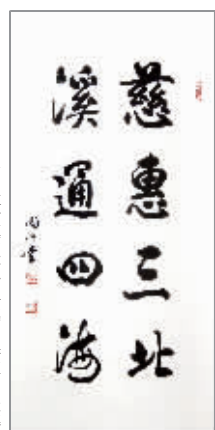 慈惠三北
溪通四海